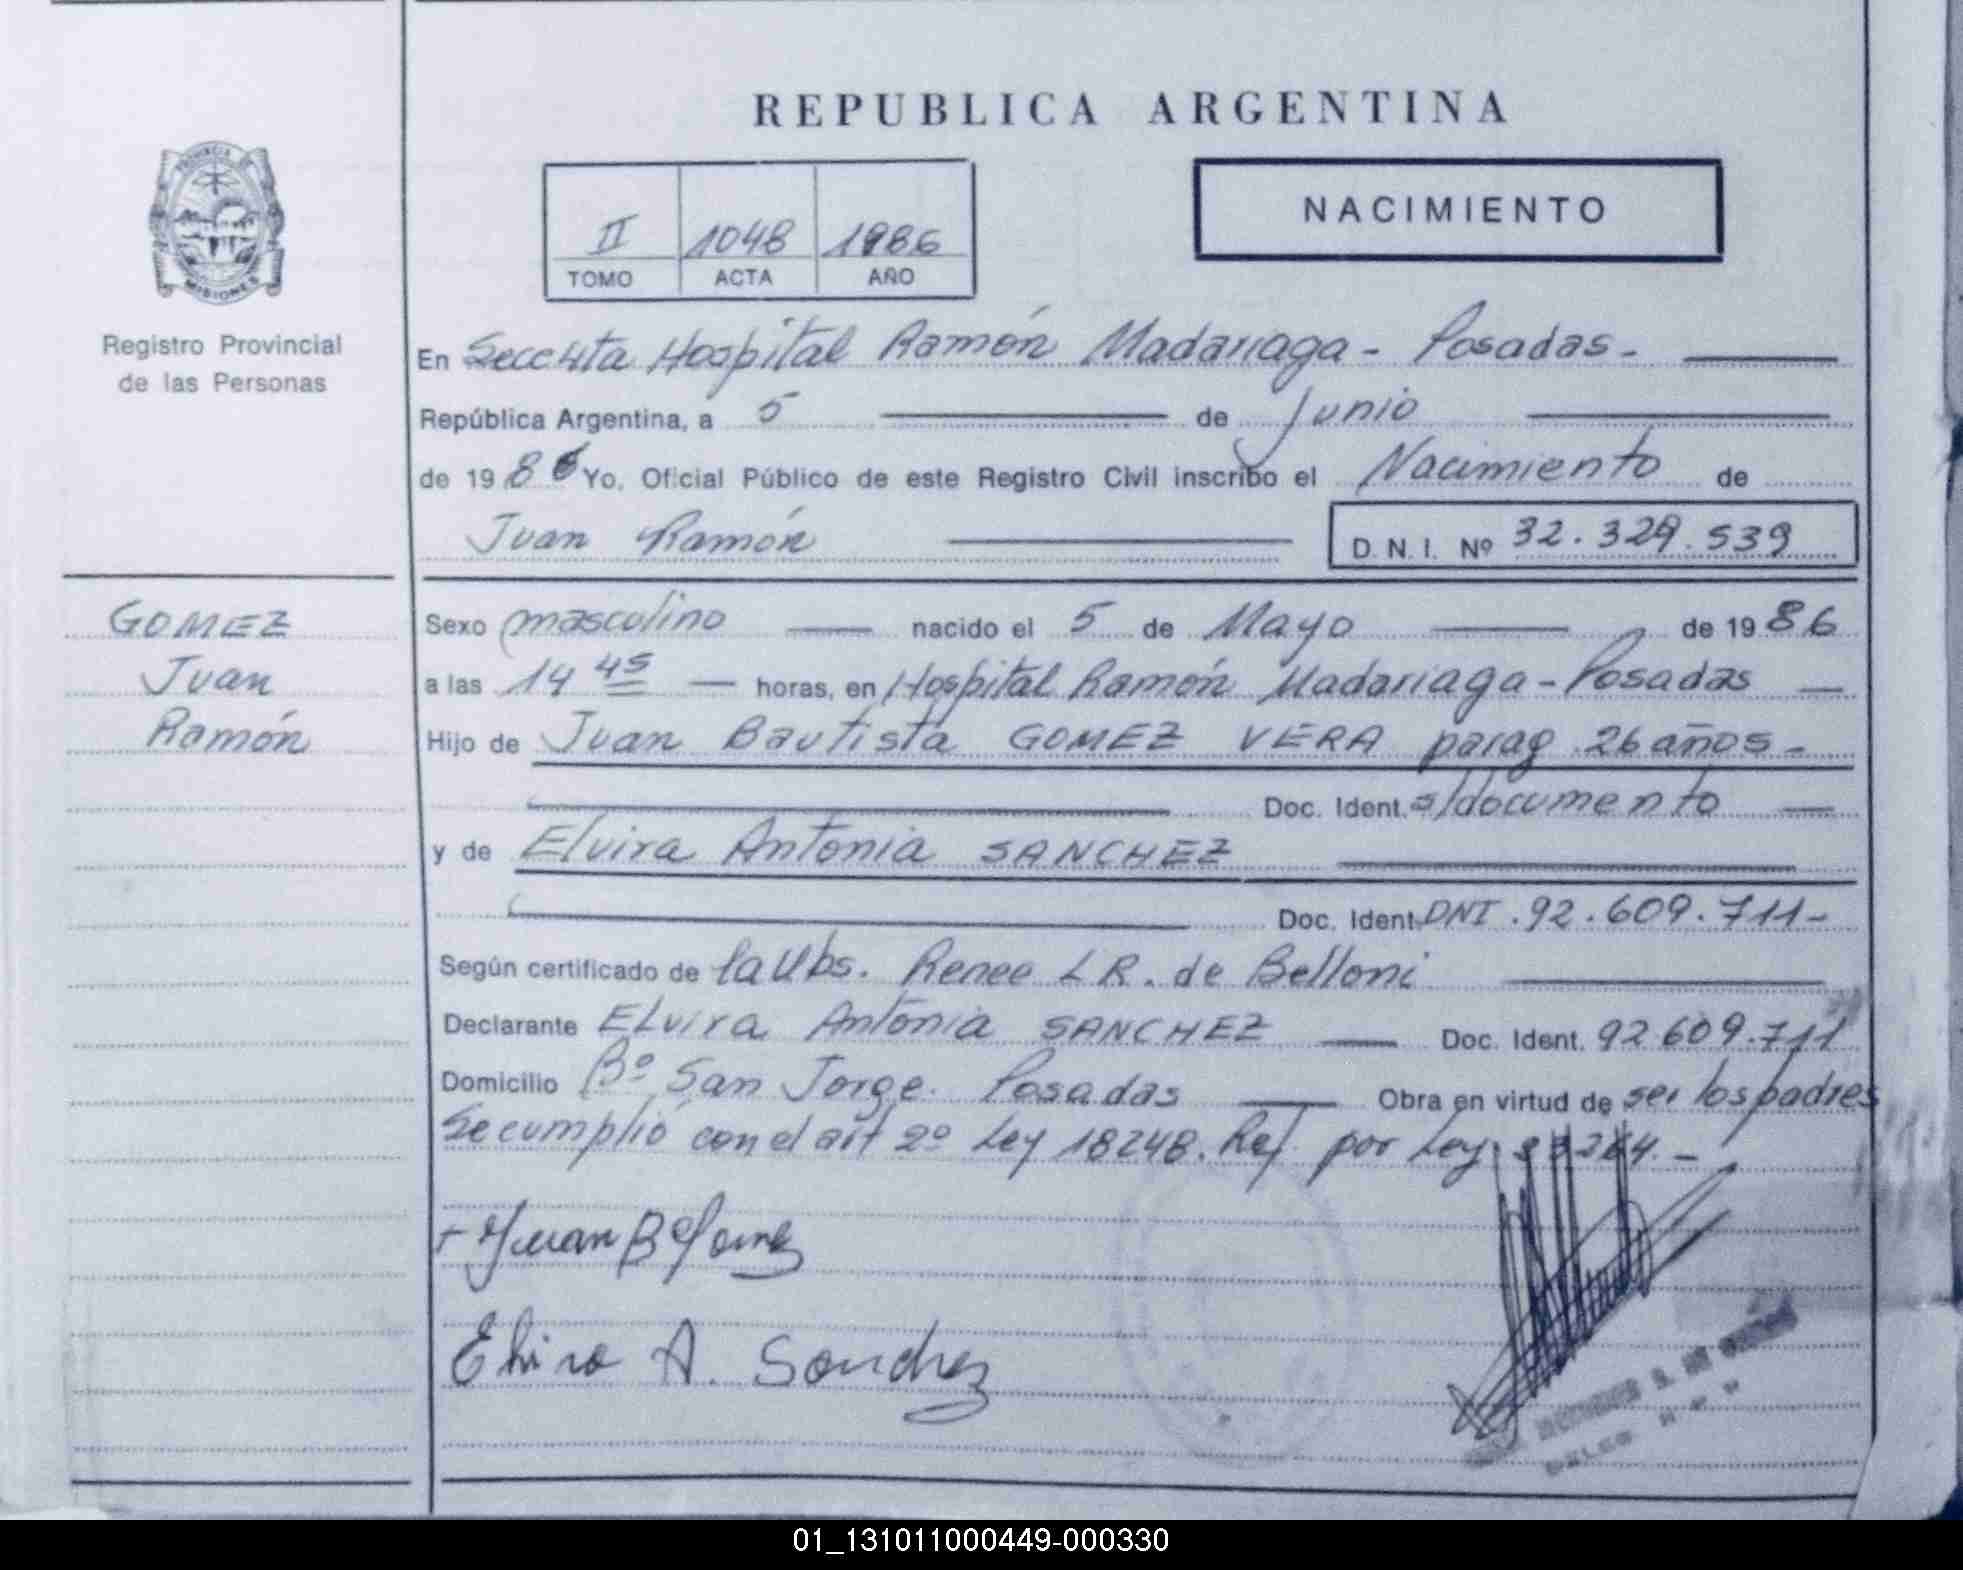 REPUBLICA ARGENTINA
PROVINCIA DE
MISIONES
Registro Provincial
de las Personas
II 1048 1986
TOMO ACTA AÑO
NACIMIENTO
En Hospital Ramón Madariaga - Posadas -
República Argentina, a 5 de Junio
de 1986 Yo, Oficial Público de este Registro Civil inscribo el Nacimiento de
Juan Ramón D. N. I. Nº 32.329.539
GOMEZ
Juan
Ramón
Sexo masculino nacido el 5 de Mayo de 1986
a las 14 45 horas, en Hospital Ramón Madariaga - Posadas
Hijo de Juan Bautista GOMEZ VERA parag 26 años -
Doc. Ident. s/documento
y de Elvira Antonia SANCHEZ
Doc. Ident. DNI. 92.609.711-
Según certificado de la Obs. Renee L R. de Belloni
Declarante Elvira Antonia SANCHEZ Doc. Ident. 92 609.711
Domicilio Bº San Jorge. Posadas Obra en virtud de ser los padres
Se cumplió con el art 2º Ley 18248. Ref. por Ley 23264. -
Juan B Gomez
Elvira A. Sanchez
01_131011000449-000330